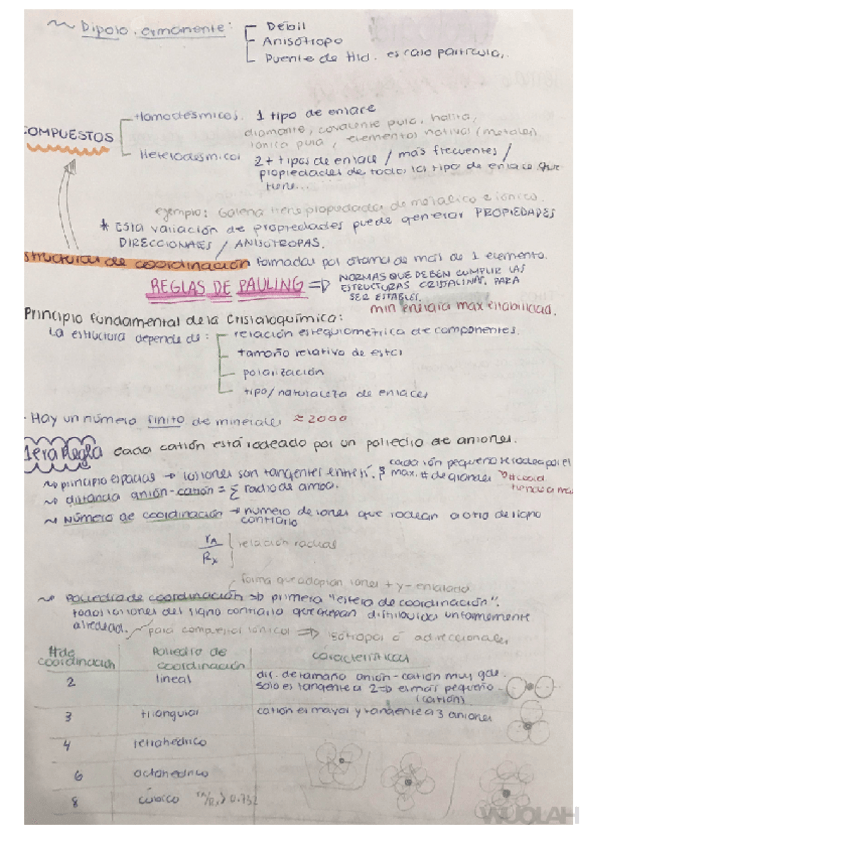 ~ Dipolo ermanente: Débil
Anisótropo
Puente de Hid. escala partícula.
Homodésmicos: 1 tipo de enlace
diamante, covalente pura, halita,
OMPUESTOS
iónica pura, elementos nativos (metales)
Heterodésmicos 2+ tipos de enlace / más frecuentes /
propiedades de todos los tipo de enlace que
tiene...
ejemplo: Galena tiene propiedades de metálico e iónico.
* Esta variación de propiedades puede generar PROPIEDADES
DIRECCIONALES / ANISÓTROPAS.
structuras de coordinación formadas por átomos de más de 1 elemento.
REGLAS DE PAULING => NORMAS QUE DEBEN CUMPLIR LAS
ESTRUCTURAS CRISTALINAS, PARA
SER ESTABLES.
min energía max estabilidad.
Principio fundamental de la Cristaloquímica:
La estructura depende de: relación estequiométrica de componentes.
tamaño relativo de estos
polarización
tipo/naturaleza de enlaces
· Hay un número finito de minerales ≈ 2000
1era Regla cada catión está rodeado por un poliedro de aniones.
~ principio espacios → los iones son tangentes entre sí. cada ión pequeño se rodea por el
max. # de grandes
~ distancia anión-catión = Σ radio de ambos.
~ Número de coordinación → numero de iones que rodean a otro de signo
contrario
rA
Rx
relación radios
forma que adoptan iones + y -
~ Poliedro de coordinación => primera "esfera de coordinación".
todos los iones del signo contrario que quepan distribuidos uniformemente
alrededor. para compuestos iónicos => isótropos ó adireccionales
# de coordinación Poliedro de coordinación características
2 lineal dif. de tamaño anión-catión muy gde.
solo es tangente a 2 => el más pequeño
(catión)
3 triangular catión es mayor y tangente a 3 aniones
4 tetrahédrico
6 octahédrico
8 cúbico > 0.732
WUOLAH